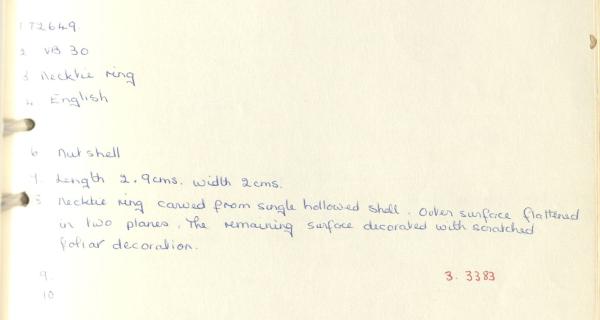 1 T2649.
2 VB 30
3 Necktie ring
4 English
6 Nutshell
7. Length 2.9cms. width 2cms.
8 Necktie ring carved from single hollowed shell. Outer surface flattened
in two planes. The remaining surface decorated with scratched
foliar decoration.
9.
3. 3383
10